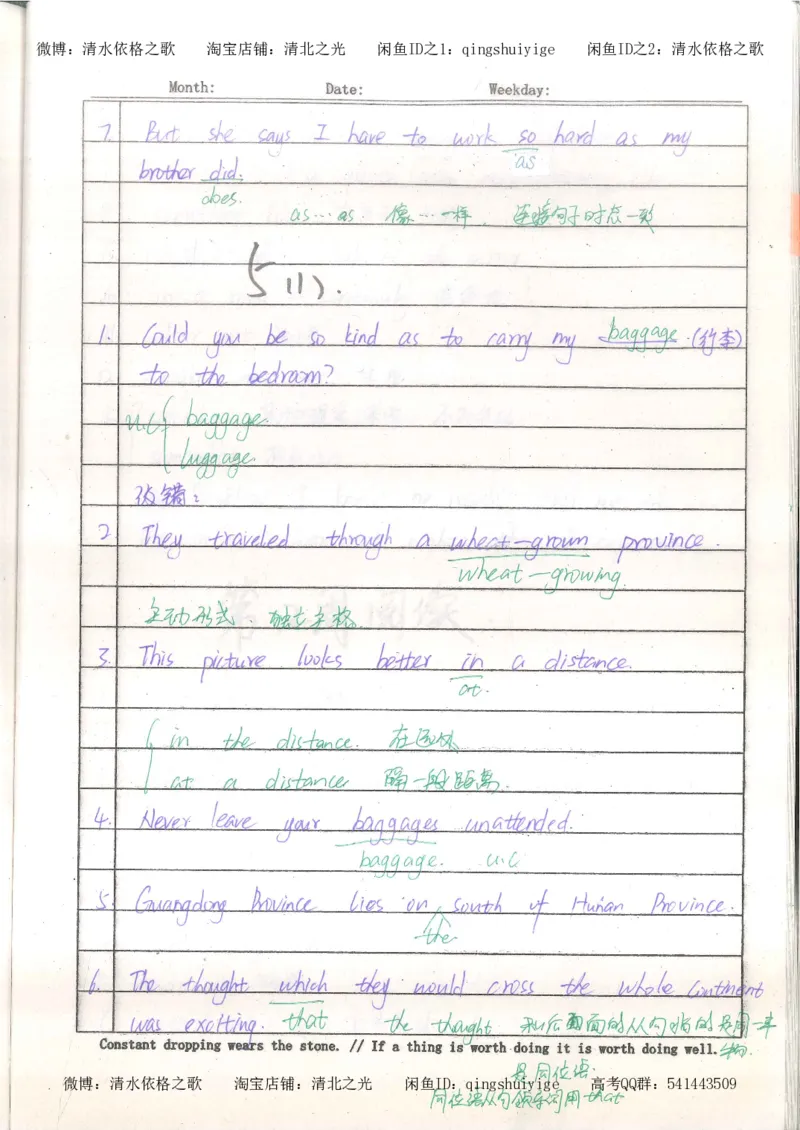 微博：清水依格之歌 淘宝店铺：清北之光 闲鱼ID之1：qingshuiyige 闲鱼ID之2：清水依格之歌
Month: Date: Weekday:
7. But she says I have to work so hard as my
as
brother did.
does.
as…as. 像…一样. 连接句子时态一致
5 11).
1. Could you be so kind as to carry my baggage.(行李)
to the bedroom?
u.c{ baggage
luggage.
改错：
2 They traveled through a wheat-grown province.
wheat-growing.
主动形式. 独立主格.
3. This picture looks better in a distance.
at.
{ in the distance. 在远处
at a distance 隔一段距离.
4. Never leave your baggages unattended.
baggage. u.c
5. Guangdong Province lies on south of Hunan Province.
the
6. The thought which they would cross the whole continent
was exciting. that the thought 和后面的从句指的是同一事
Constant dropping wears the stone. // If a thing is worth doing it is worth doing well. 物.
是同位语.
微博：清水依格之歌 淘宝店铺：清北之光 闲鱼ID：qingshuiyige 高考QQ群：541443509
同位语从句领导词用that